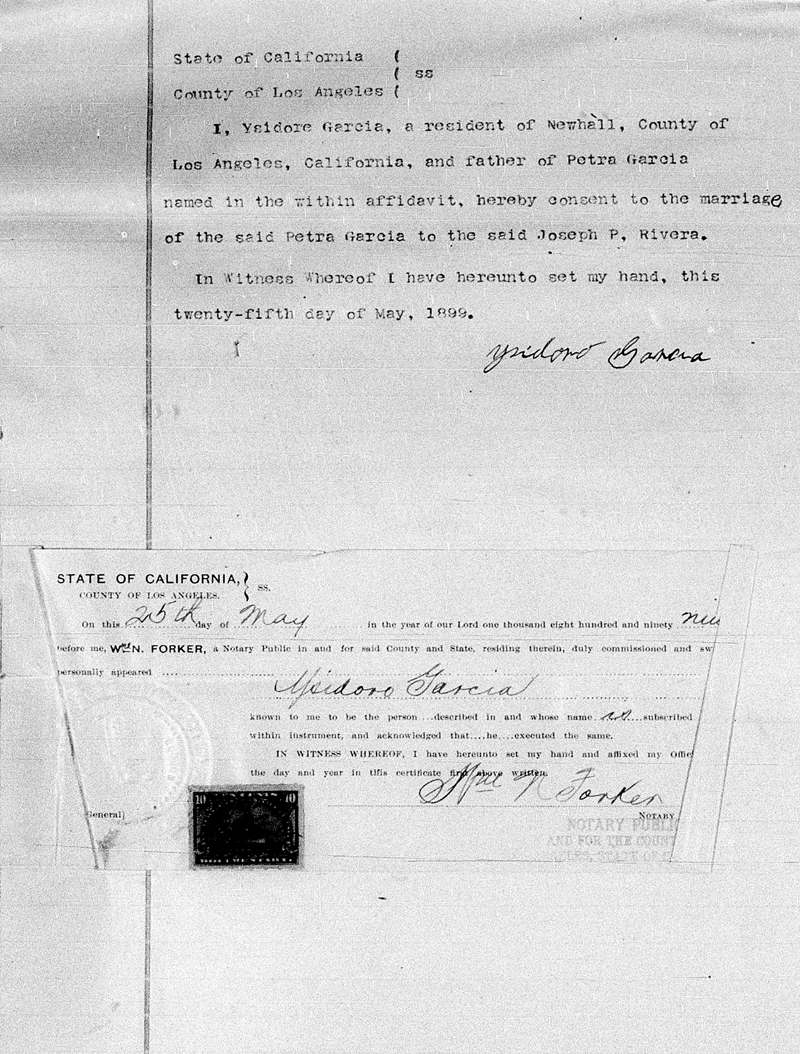 State of California (
( ss
County of Los Angeles (
I, Ysidore Garcia, a resident of Newhall, County of
Los Angeles, California, and father of Petra Garcia
named in the within affidavit, hereby consent to the marriage
of the said Petra Garcia to the said Joseph P. Rivera.
In Witness Whereof I have hereunto set my hand, this
twenty-fifth day of May, 1899.
Ysidoro Garcia
STATE OF CALIFORNIA,
COUNTY OF LOS ANGELES. } ss.
On this 25th day of May in the year of our Lord one thousand eight hundred and ninety
before me, Wm N. FORKER, a Notary Public in and for said County and State, residing therein, duly commissioned and sw
personally appeared
Ysidoro Garcia
known to me to be the person ...described in and whose name is subscribed
within instrument, and acknowledged that....he....executed the same.
IN WITNESS WHEREOF, I have hereunto set my hand and affixed my Offic
the day and year in this certificate first above written.
Wm N Forker
General]
NOTARY
10 10
NOTARY PUBLI
AND FOR THE COUNT
LES, STATE OF C